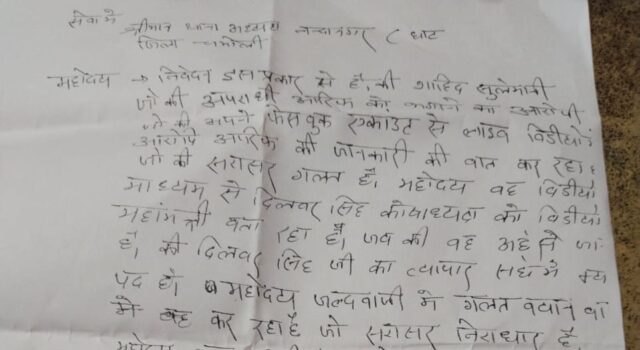 सेवा में
श्रीमान थाना अध्यक्ष नन्दानगर (घाट
जिला चमोली
महोदय → निवेदन इस प्रकार से है, की शाहिद सुलेमानी
जो की अपराधी आरिफ को का आरोपी
जो की अपने फेसबुक एकाउंट से लाइव विडीयो
आरोपी आरिफ की जानकारी की बात कर रहा है
जो की सरासर गलत है। महोदय वह विडीयो
माध्यम से दिलवर सिंह कोषाध्यक्ष को विडीयो
महामंत्री बता रहा है, जब की वह अछे से जा
है, की दिलवर सिंह जी का व्यापार संघ में क्या
पद है। महोदय जल्दवाजी में गलत वयान वा
मे वह कर रहा है जो सरासर निराधार है,
महोदय